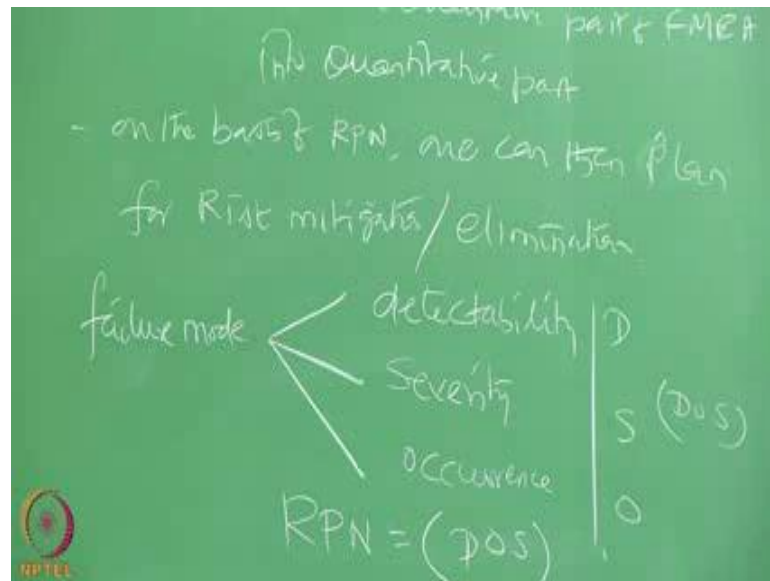 part of FMEA
into Quantitative part
- on the basis of RPN, one can then plan
for Risk mitigation / elimination
failure mode
detectability D
Severity S (DOS)
occurrence O
RPN = (DOS)
NPTEL